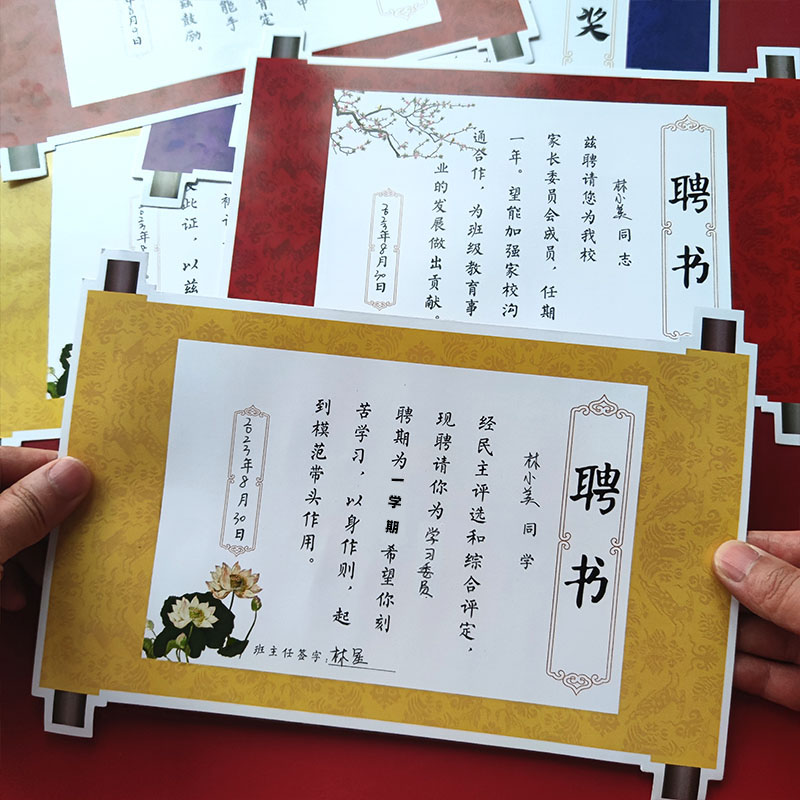 聘书
林小美 同学
经民主评选和综合评定，
现聘请你为 学习委员
聘期为 一学期 希望你刻
苦学习，以身作则，起
到模范带头作用。
2023年8月30日
班主任签字：林星
聘书
林小美 同志
兹聘请您为我校
家长委员会成员，任期
一年。望能加强家校沟
通合作，为班级教育事
业的发展做出贡献。
2023年8月30日
奖
此证，以兹
2023年8
能手
兹鼓励。